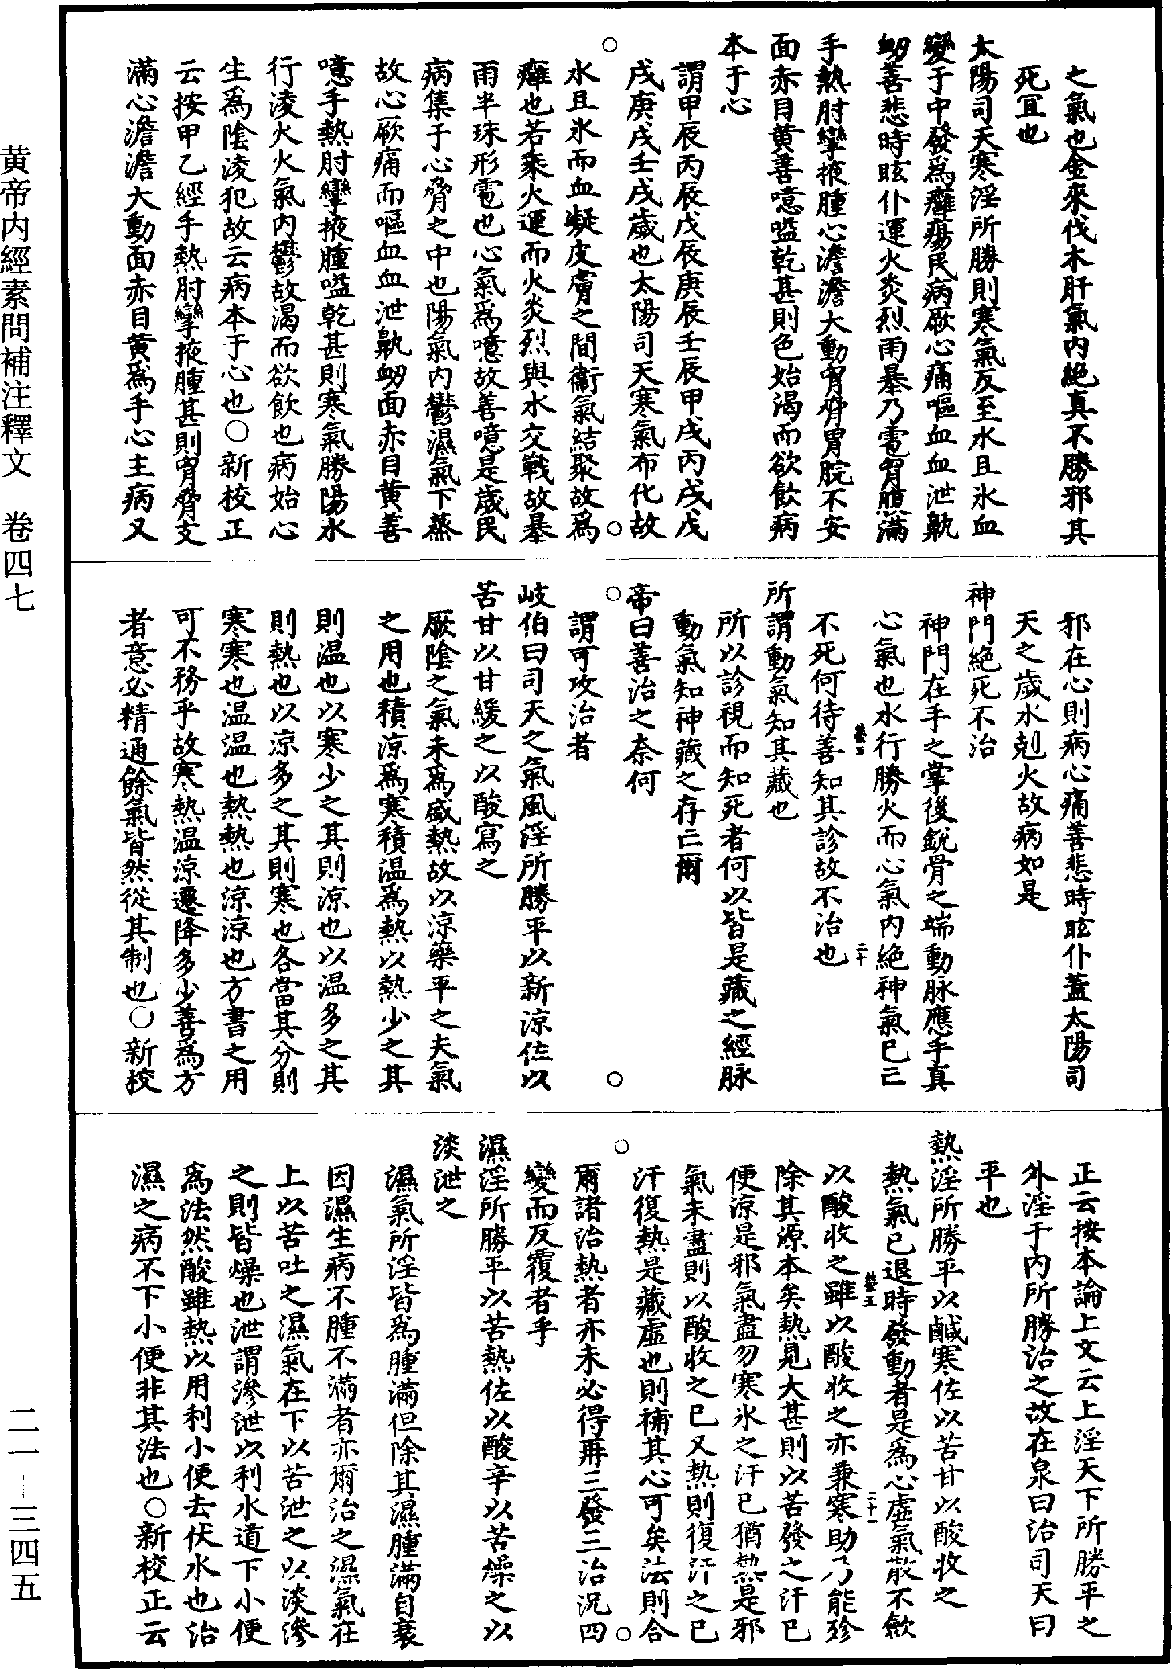 之氣也金來伐木肝氣內絕真不勝邪其
死宜也
太陽司天寒淫所勝則寒氣反至水且氷血
變于中發爲癰瘍民病厥心痛嘔血血泄鼽
衂善悲時眩仆運火炎烈雨暴乃雹胷腹滿
手熱肘攣掖腫心澹澹大動胷脅胃脘不安
面赤目黃善噫嗌乾甚則色炲渴而欲飲病
本于心
謂甲辰丙辰戊辰庚辰壬辰甲戌丙戌戊
戌庚戌壬戌歲也太陽司天寒氣布化故
水且氷而血凝皮膚之間衞氣結聚故爲
癰也若乘火運而火炎烈與水交戰故暴
雨半珠形雹也心氣爲噫故善噫是歲民
病集于心脅之中也陽氣內鬱濕氣下蒸
故心厥痛而嘔血血泄鼽衂面赤目黃善
噫手熱肘攣掖腫嗌乾甚則寒氣勝陽水
行淩火火氣內鬱故渴而欲飲也病始心
生爲陰淩犯故云病本于心也○新校正
云按甲乙經手熱肘攣掖腫甚則胷脅支
滿心澹澹大動面赤目黃爲手心主病又
邪在心則病心痛善悲時眩仆蓋太陽司
天之歲水剋火故病如是
神門絕死不治
神門在手之掌後銳骨之端動脉應手真
心氣也水行勝火而心氣內絕神氣已亡
不死何待善知其診故不治也
所謂動氣知其藏也
所以診視而知死者何以皆是藏之經脉
動氣知神藏之存亡爾
帝曰善治之奈何
謂可攻治者
岐伯曰司天之氣風淫所勝平以新涼佐以
苦甘以甘緩之以酸寫之
厥陰之氣未爲盛熱故以涼藥平之夫氣
之用也積涼爲寒積温爲熱以熱少之其
則温也以寒少之其則涼也以温多之其
則熱也以涼多之其則寒也各當其分則
寒寒也温温也熱熱也涼涼也方書之用
可不務乎故寒熱温涼遷降多少善爲方
者意必精通餘氣皆然從其制也○新校
正云按本論上文云上淫天下所勝平之
外淫于內所勝治之故在泉曰治司天曰
平也
熱淫所勝平以鹹寒佐以苦甘以酸收之
熱氣已退時發動者是爲心虛氣散不斂
以酸收之雖以酸收之亦兼寒助乃能殄
除其源本矣熱見大甚則以苦發之汗已
便涼是邪氣盡勿寒氷之汗已猶熱是邪
氣未盡則以酸收之已又熱則復汗之已
汗復熱是藏虛也則補其心可矣法則合
爾諸治熱者亦未必得再三發三治況四
變而反覆者乎
濕淫所勝平以苦熱佐以酸辛以苦燥之以
淡泄之
濕氣所淫皆爲腫滿但除其濕腫滿自衰
因濕生病不腫不滿者亦爾治之濕氣在
上以苦吐之濕氣在下以苦泄之以淡滲
之則皆燥也泄謂滲泄以利水道下小便
爲法然酸雖熱以用利小便去伏水也治
濕之病不下小便非其法也○新校正云
黃帝內經素問補注釋文　卷四七
二一—三四五